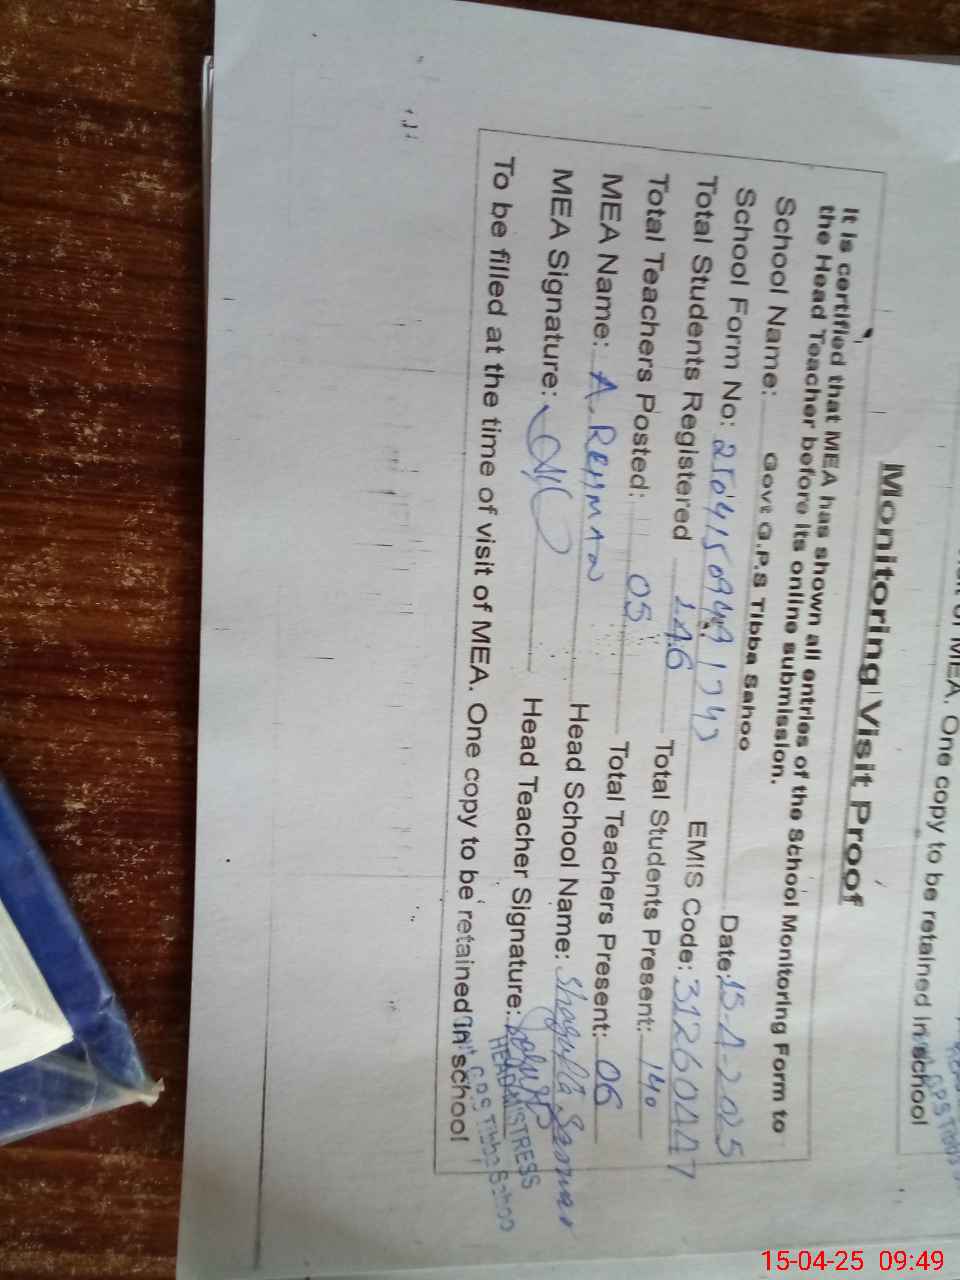 of MEA. One copy to be retained in school
Monitoring Visit Proof
It is certified that MEA has shown all entries of the School Monitoring Form to
the Head Teacher before its online submission.
School Name: Govt G.P.S Tibba Sahoo Date: 15-4-2025
School Form No: EMIS Code: 31260447
Total Students Registered 146 Total Students Present: 140
Total Teachers Posted: 05 Total Teachers Present: 06
MEA Name: A. REHMAN Head School Name: Shagufta
MEA Signature: Head Teacher Signature:
HEADMISTRESS
GPS Tibba Sahoo
To be filled at the time of visit of MEA. One copy to be retained in school
15-04-25 09:49